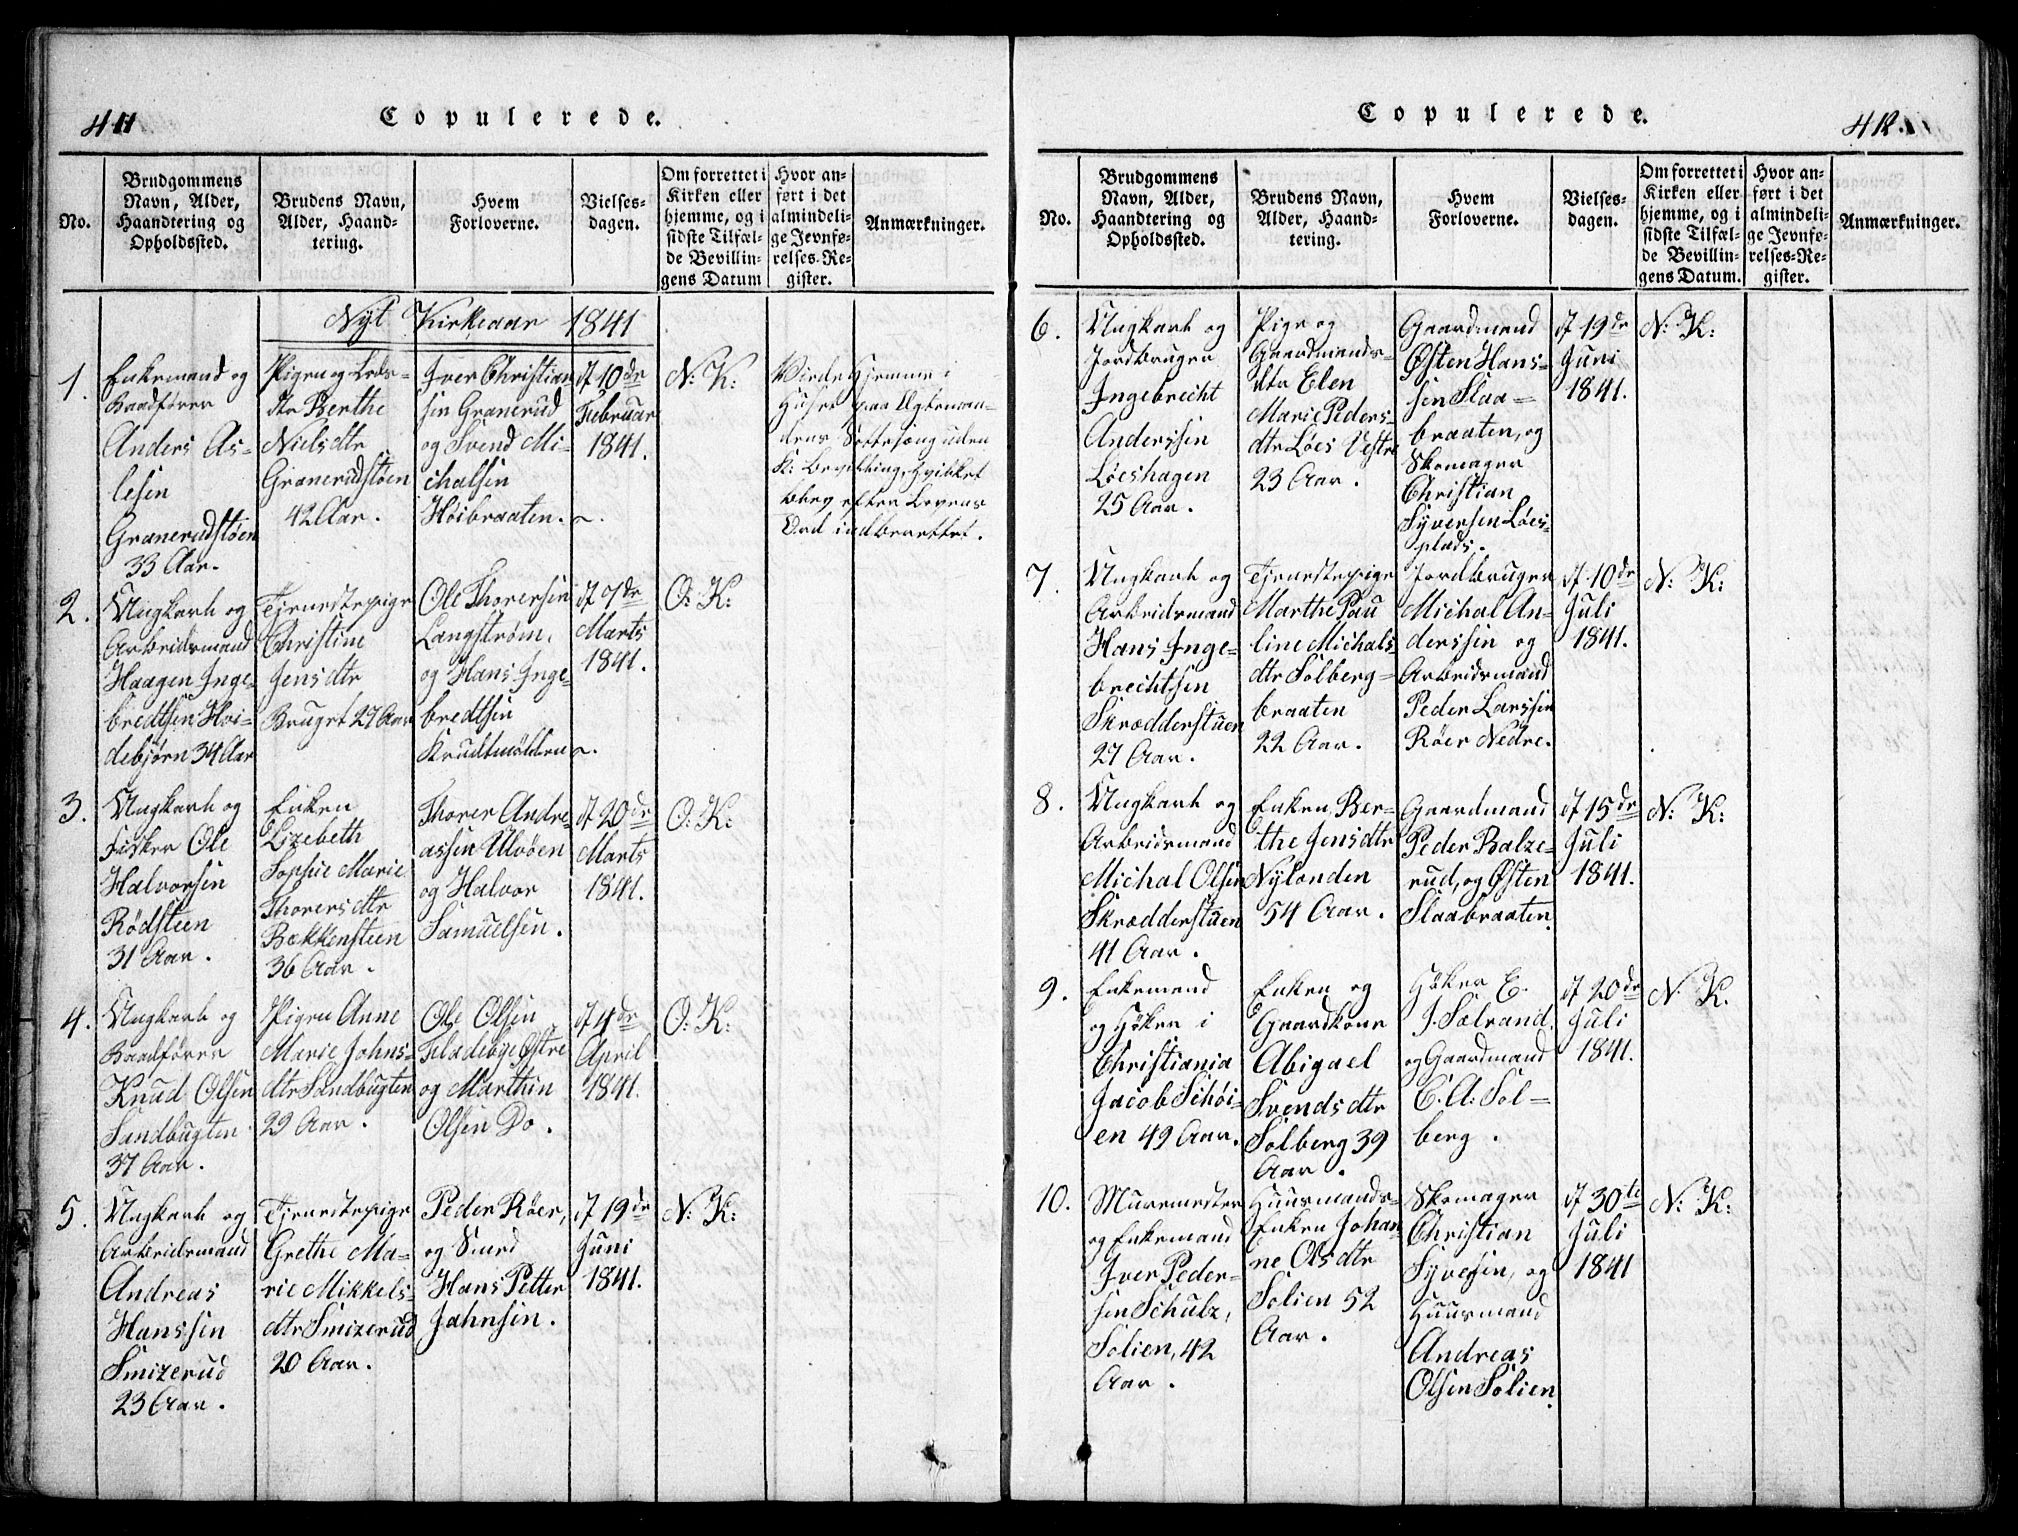 411
Copulerede.
No.
Brudgommens
Navn, Alder,
Haandtering og
Opholdssted.
Brudens Navn,
Alder, Haand-
tering.
Hvem
Forloverne.
Vielses-
dagen.
Om forrettet i
Kirken eller
hjemme, og i
sidste Tilfæl-
de Bevillin-
gens Datum
Hvor an-
ført i det
almindeli-
ge Jevnfø-
relses-Re-
gister.
Anmærkninger.
Nyt Kirkeaar 1841
1.
Enkemand og
Baadfører
Anders As-
lesen
Granerudstøen
33 Aar.
Pigen og
dtr Berthe
Nielsdtr
Granerudstøen
42 Aar.
Iver Christian
sen Granerud
og Svend Mi-
chalsen
Høibraaten.
d 10de
Februar
1841.
N: K:
Viede Hjemme i
Huset paa Ægteman-
dens Sottesæng uden
K: Bevilling, hvilket
blev efter Lovens
Ord indberettet.
2.
Ungkarl og
Arbeidsmand
Haagen Inge-
bredtsen Hvi-
debjørn 34 Aar
Tjenestepige
Christine
Jensdtr
Bruget 27 Aar
Ole Thoresen
Langstrøm,
og Hans Inge-
bredtsen
Krudtmøllen
d 7de
Marts
1841.
O: K:
3.
Ungkarl og
Fisker Ole
Halvorsen
Rødsteen
31 Aar.
Enken
Lizebeth
Sophie Marie
Thorersdtr
Bækkensteen
36 Aar.
Thorer Andre-
assen Ulvøen
og Halvor
Samuelsen.
d 20de
Marts
1841.
O: K:
4.
Ungkarl og
Baadfører
Knud Olsen
Sandbugten
37 Aar.
Pigen Anne
Marie Johns-
dtr Sandbugten
29 Aar.
Ole Olsen
Fladebye Østre
og Marthin
Olsen Do.
d 4de
April
1841.
O: K:
5.
Ungkarl og
Arbeidsmand
Andreas
Hanssen
Smizerud
23 Aar.
Tjenestepige
Grethe Ma-
rie Mikkels-
dtr Smizerud
20 Aar.
Peder Røer,
og Smed
Hans Petter
Jahnsen.
d 19de
Juni
1841.
N: K:
Copulerede.
412.
No.
Brudgommens
Navn, Alder,
Haandtering og
Opholdssted.
Brudens Navn,
Alder, Haand-
tering.
Hvem
Forloverne.
Vielses-
dagen.
Om forrettet i
Kirken eller
hjemme, og i
sidste Tilfæl-
de Bevillin-
gens Datum.
Hvor an-
ført i det
almindeli-
ge Jevnfø-
relses-Re-
gister.
Anmærkninger.
6.
Ungkarl og
Jordbruger
Ingebrecht
Anderssen
Løeshagen
25 Aar.
Pige og
Gaardmands-
dtr Elen
Marie Peders-
dtr Løes Vestre
23 Aar.
Gaardmand
Østen Hans-
sen Slaa-
braaten, og
Skomager
Christian
Syversen Løes-
plads.
d 19de
Juni
1841.
N: K:
7.
Ungkarl og
Arbeidsmand
Hans Inge-
brechtsen
Skrædderstuen
27 Aar.
Tjenestepige
Marthe Pau
line Michals-
dtr Solberg-
braaten
22 Aar.
Jordbruger
Michal An-
derssen og
Arbeidsmand
Peder Larssen
Røer Nedre.
d 10de
Juli
1841.
N: K:
8.
Ungkarl og
Arbeidsmand
Michal Olsen
Skrædderstuen
41 Aar.
Enken Ber-
the Jensdtr
Nylanden
54 Aar.
Gaardmand
Peder Balze-
rud, og Østen
Slaabraaten.
d 15de
Juli
1841.
N: K:
9.
Enkemand
og Høker i
Christiania
Jacob Schöi-
en 49 Aar.
Enken og
Gaardkone
Abigael
Svendsdtr
Solberg 39
Aar.
Høker E.
J. Sælrand
og Gaardmand
E. A: Sol-
berg.
d 20de
Juli
1841.
N. K.
10.
Muremester
og Enkemand
Iver Peder-
sen Schulz,
Solien, 42
Aar.
Huusmands-
Enken Johan
ne Olsdtr
Solien 52
Aar.
Skomager
Christian
Syversen, og
Huusmand
Andreas
Olsen Solien.
d 30te
Juli
1841
N: K: